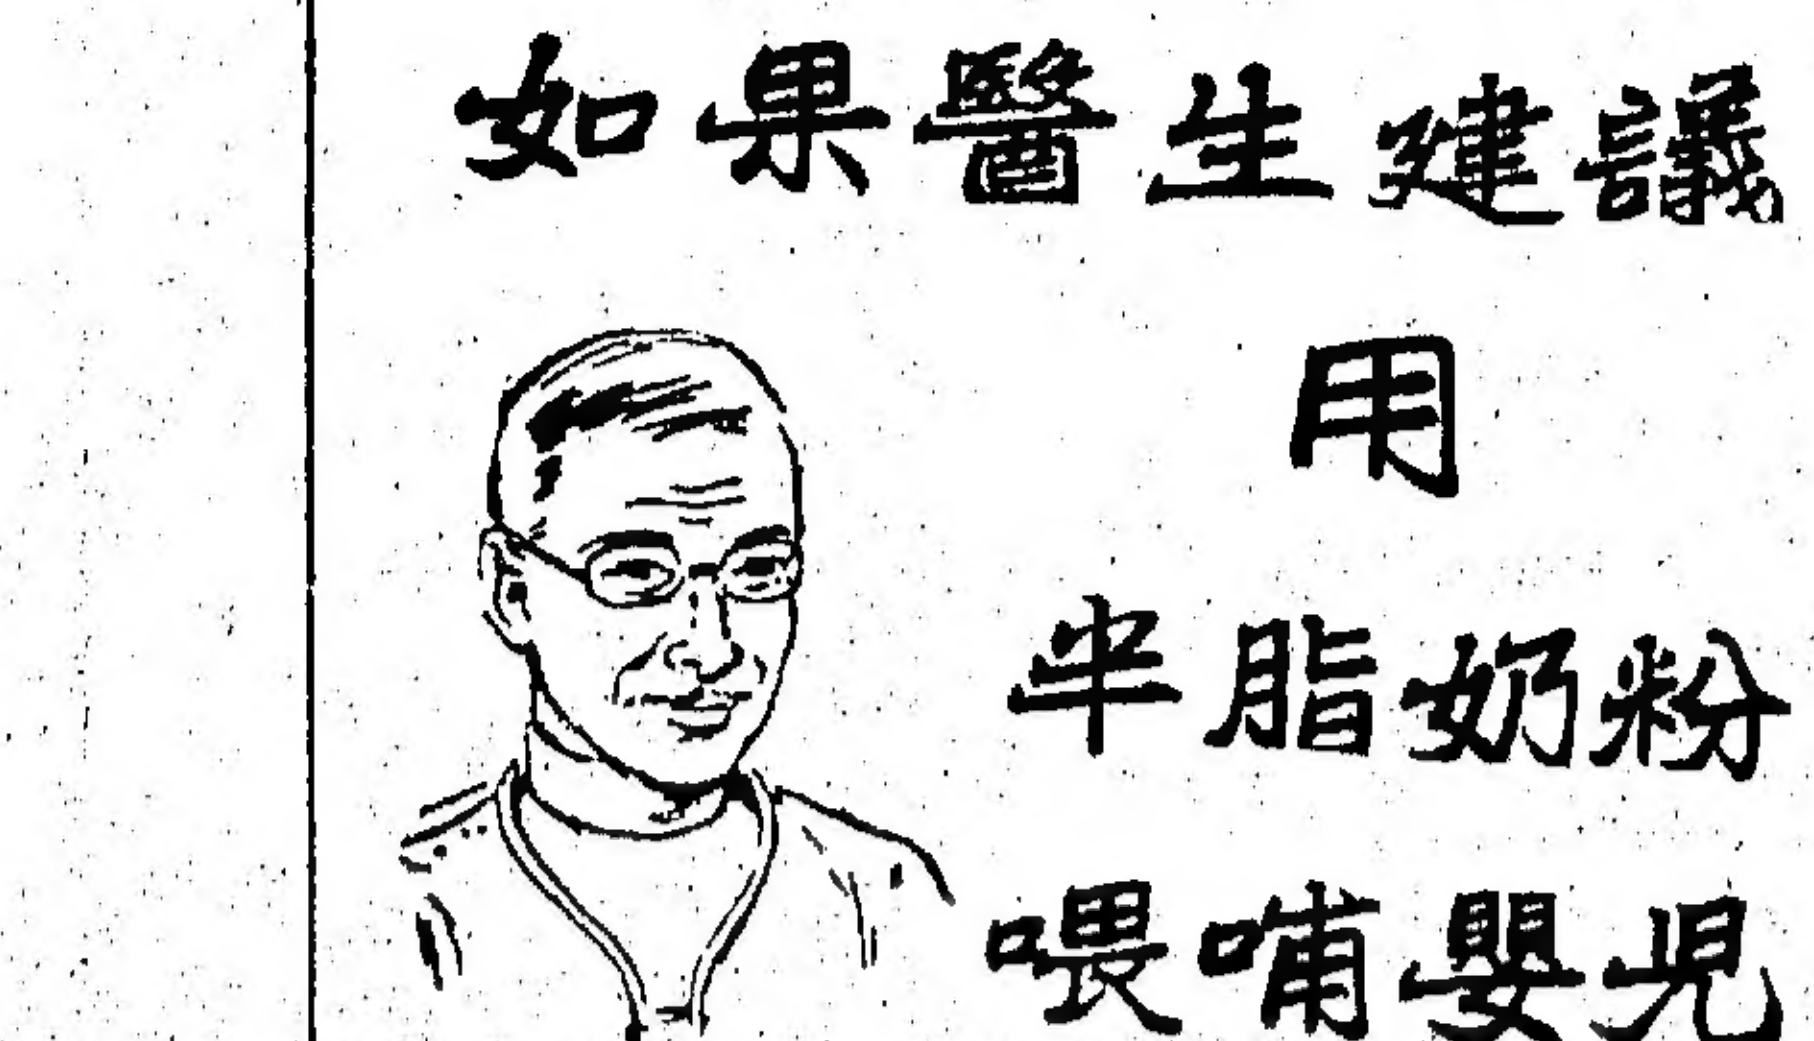 如果醫生建議
用
半脂奶粉
喂哺嬰兒